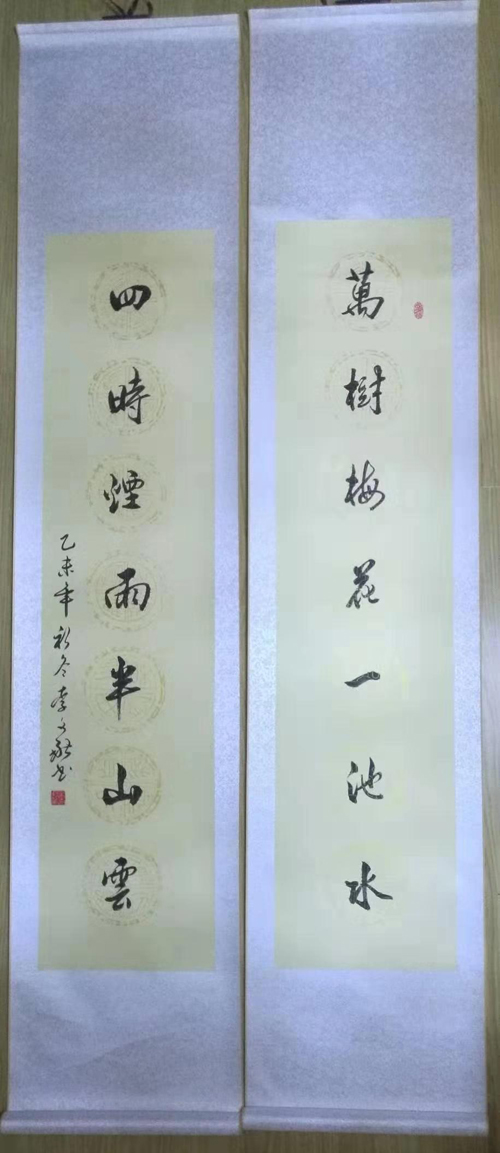 萬樹梅花一池水
四時煙雨半山雲
乙未年初冬李文敬書